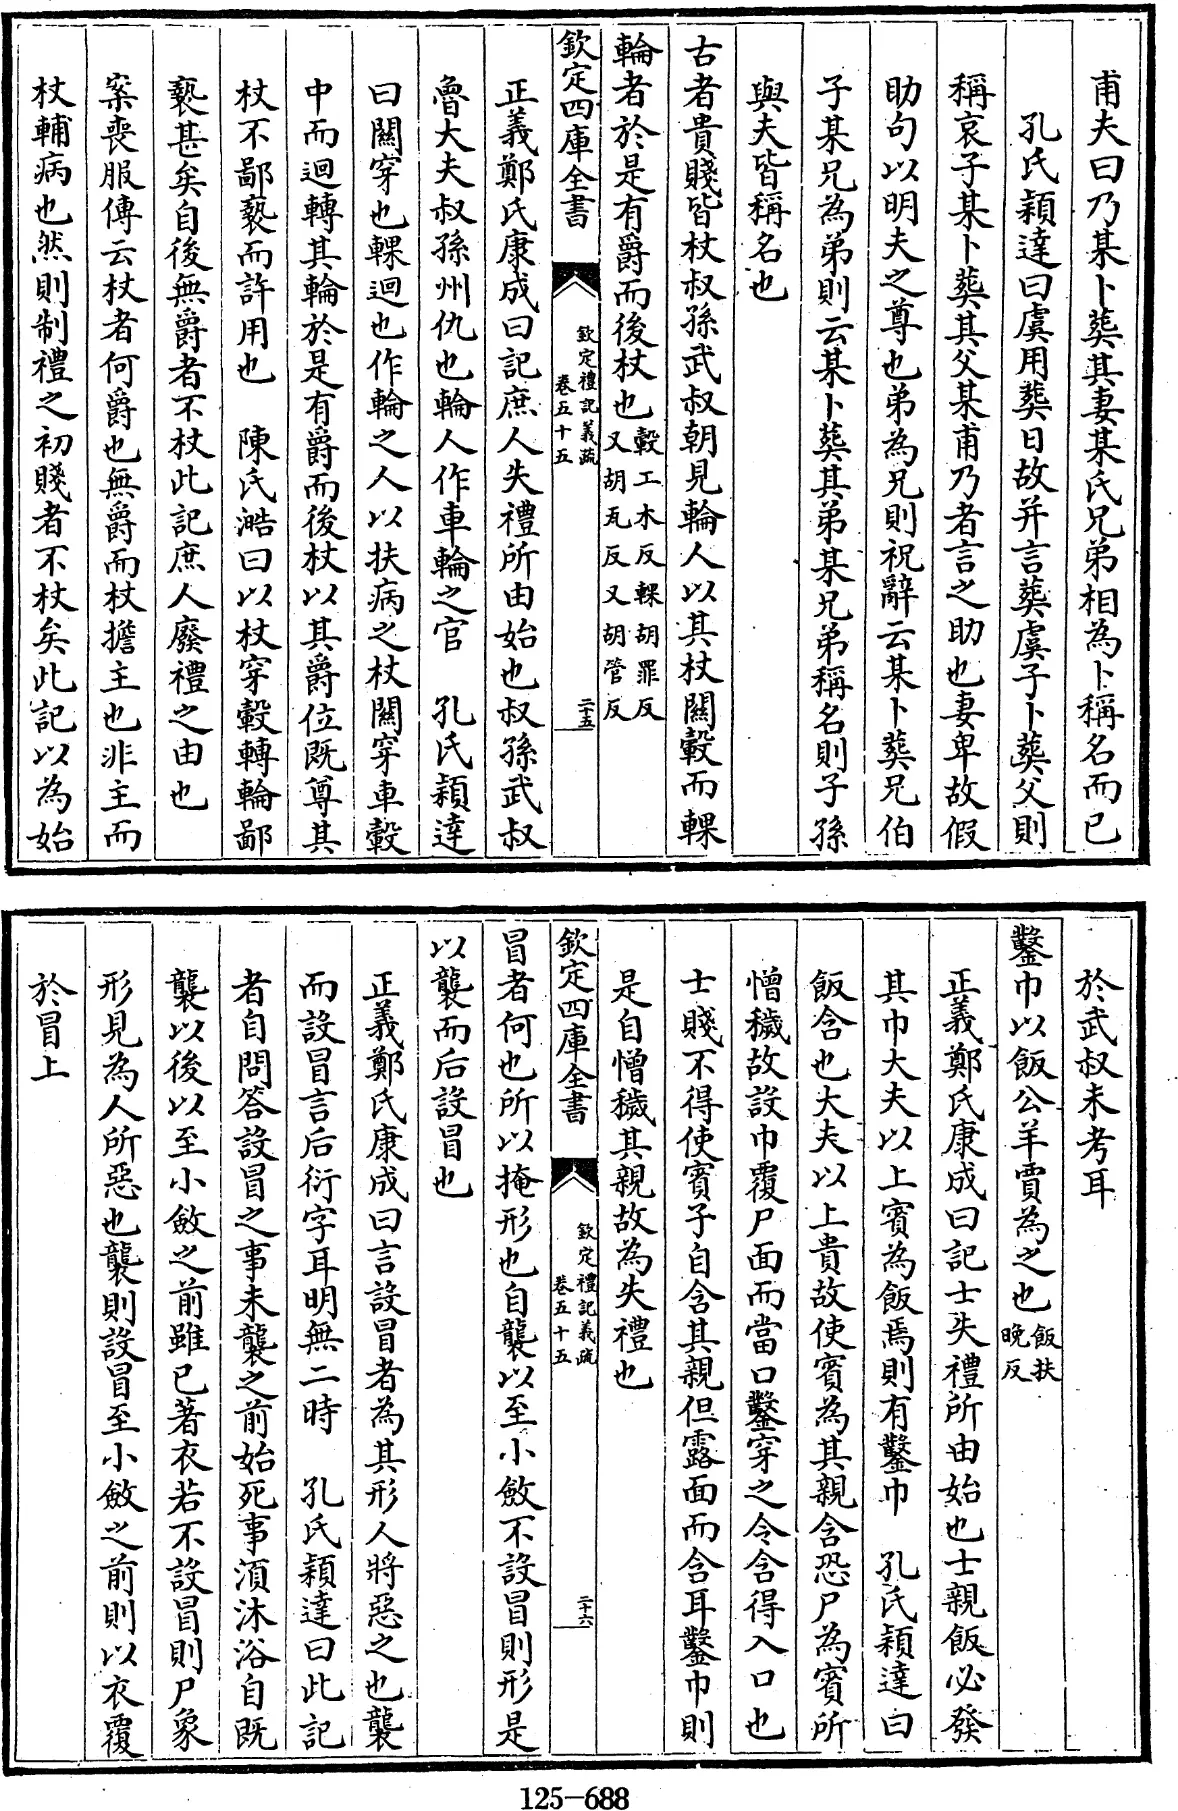 甫夫曰乃某卜葬其妻某氏兄弟相為卜稱名而已
孔氏穎達曰虞用葬日故并言葬虞子卜葬父則
稱哀子某卜葬其父某甫乃者言之助也妻卑故假
助句以明夫之尊也弟為兄則祝辭云某卜葬兄伯
子某兄為弟則云某卜葬其弟某兄弟稱名則子孫
與夫皆稱名也
古者貴賤皆杖叔孫武叔朝見輪人以其杖關轂而輠
輪者於是有爵而後杖也轂工木反輠胡罪反又胡瓦反又胡管反
欽定四庫全書
欽定禮記義疏
卷五十五
二十五
正義鄭氏康成曰記庶人失禮所由始也叔孫武叔
魯大夫叔孫州仇也輪人作車輪之官　孔氏穎達
曰關穿也輠迴也作輪之人以扶病之杖關穿車轂
中而迴轉其輪於是有爵而後杖以其爵位既尊其
杖不鄙褻而許用也　陳氏澔曰以杖穿轂轉輪鄙
褻甚矣自後無爵者不杖此記庶人廢禮之由也
案喪服傳云杖者何爵也無爵而杖擔主也非主而
杖輔病也然則制禮之初賤者不杖矣此記以為始
於武叔未考耳
鑿巾以飯公羊賈為之也飯扶晚反
正義鄭氏康成曰記士失禮所由始也士親飯必發
其巾大夫以上賓為飯焉則有鑿巾　孔氏穎達曰
飯含也大夫以上貴故使賓為其親含恐尸為賓所
憎穢故設巾覆尸面而當口鑿穿之令含得入口也
士賤不得使賓子自含其親但露面而含耳鑿巾則
是自憎穢其親故為失禮也
欽定四庫全書
欽定禮記義疏
卷五十五
二十六
冒者何也所以掩形也自襲以至小斂不設冒則形是
以襲而后設冒也
正義鄭氏康成曰言設冒者為其形人將惡之也襲
而設冒言后衍字耳明無二時　孔氏穎達曰此記
者自問答設冒之事未襲之前始死事須沐浴自既
襲以後以至小斂之前雖已著衣若不設冒則尸象
形見為人所惡也襲則設冒至小斂之前則以衣覆
於冒上
125-688